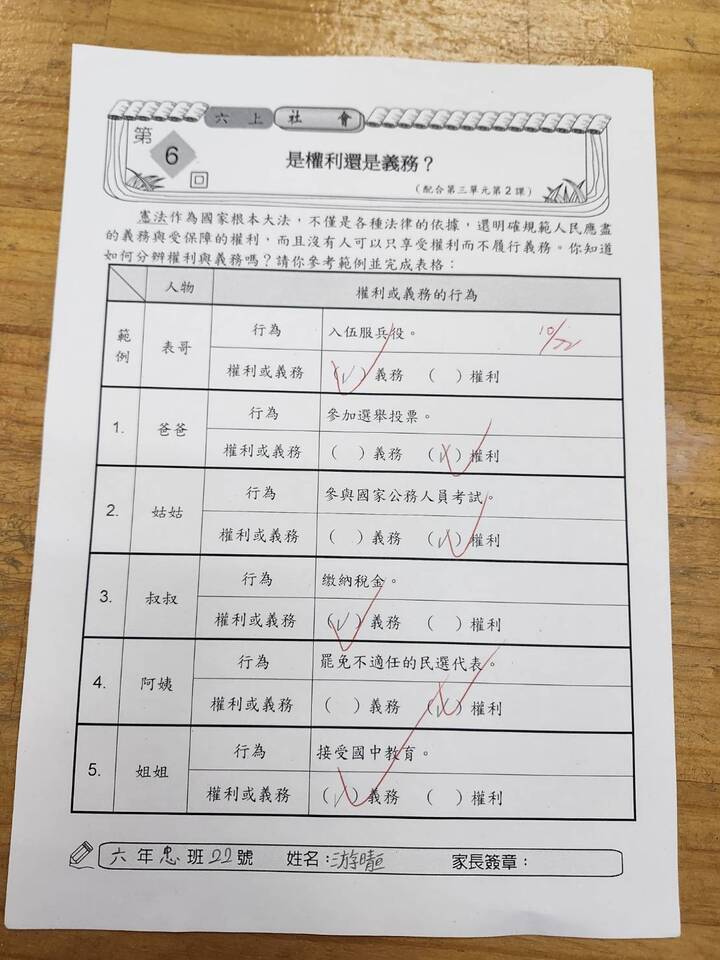 六上 社會
第6回
是權利還是義務？
（配合第三單元第2課）
憲法作為國家根本大法，不僅是各種法律的依據，還明確規範人民應盡
的義務與受保障的權利，而且沒有人可以只享受權利而不履行義務。你知道
如何分辨權利與義務嗎？請你參考範例並完成表格：
人物 權利或義務的行為
範例 表哥 行為 入伍服兵役。 10/22
權利或義務 （✓）義務 （ ）權利
1. 爸爸 行為 參加選舉投票。
權利或義務 （ ）義務 （✓）權利
2. 姑姑 行為 參與國家公務人員考試。
權利或義務 （ ）義務 （✓）權利
3. 叔叔 行為 繳納稅金。
權利或義務 （✓）義務 （ ）權利
4. 阿姨 行為 罷免不適任的民選代表。
權利或義務 （ ）義務 （✓）權利
5. 姐姐 行為 接受國中教育。
權利或義務 （✓）義務 （ ）權利
六年忠班22號 姓名：游晴 家長簽章：